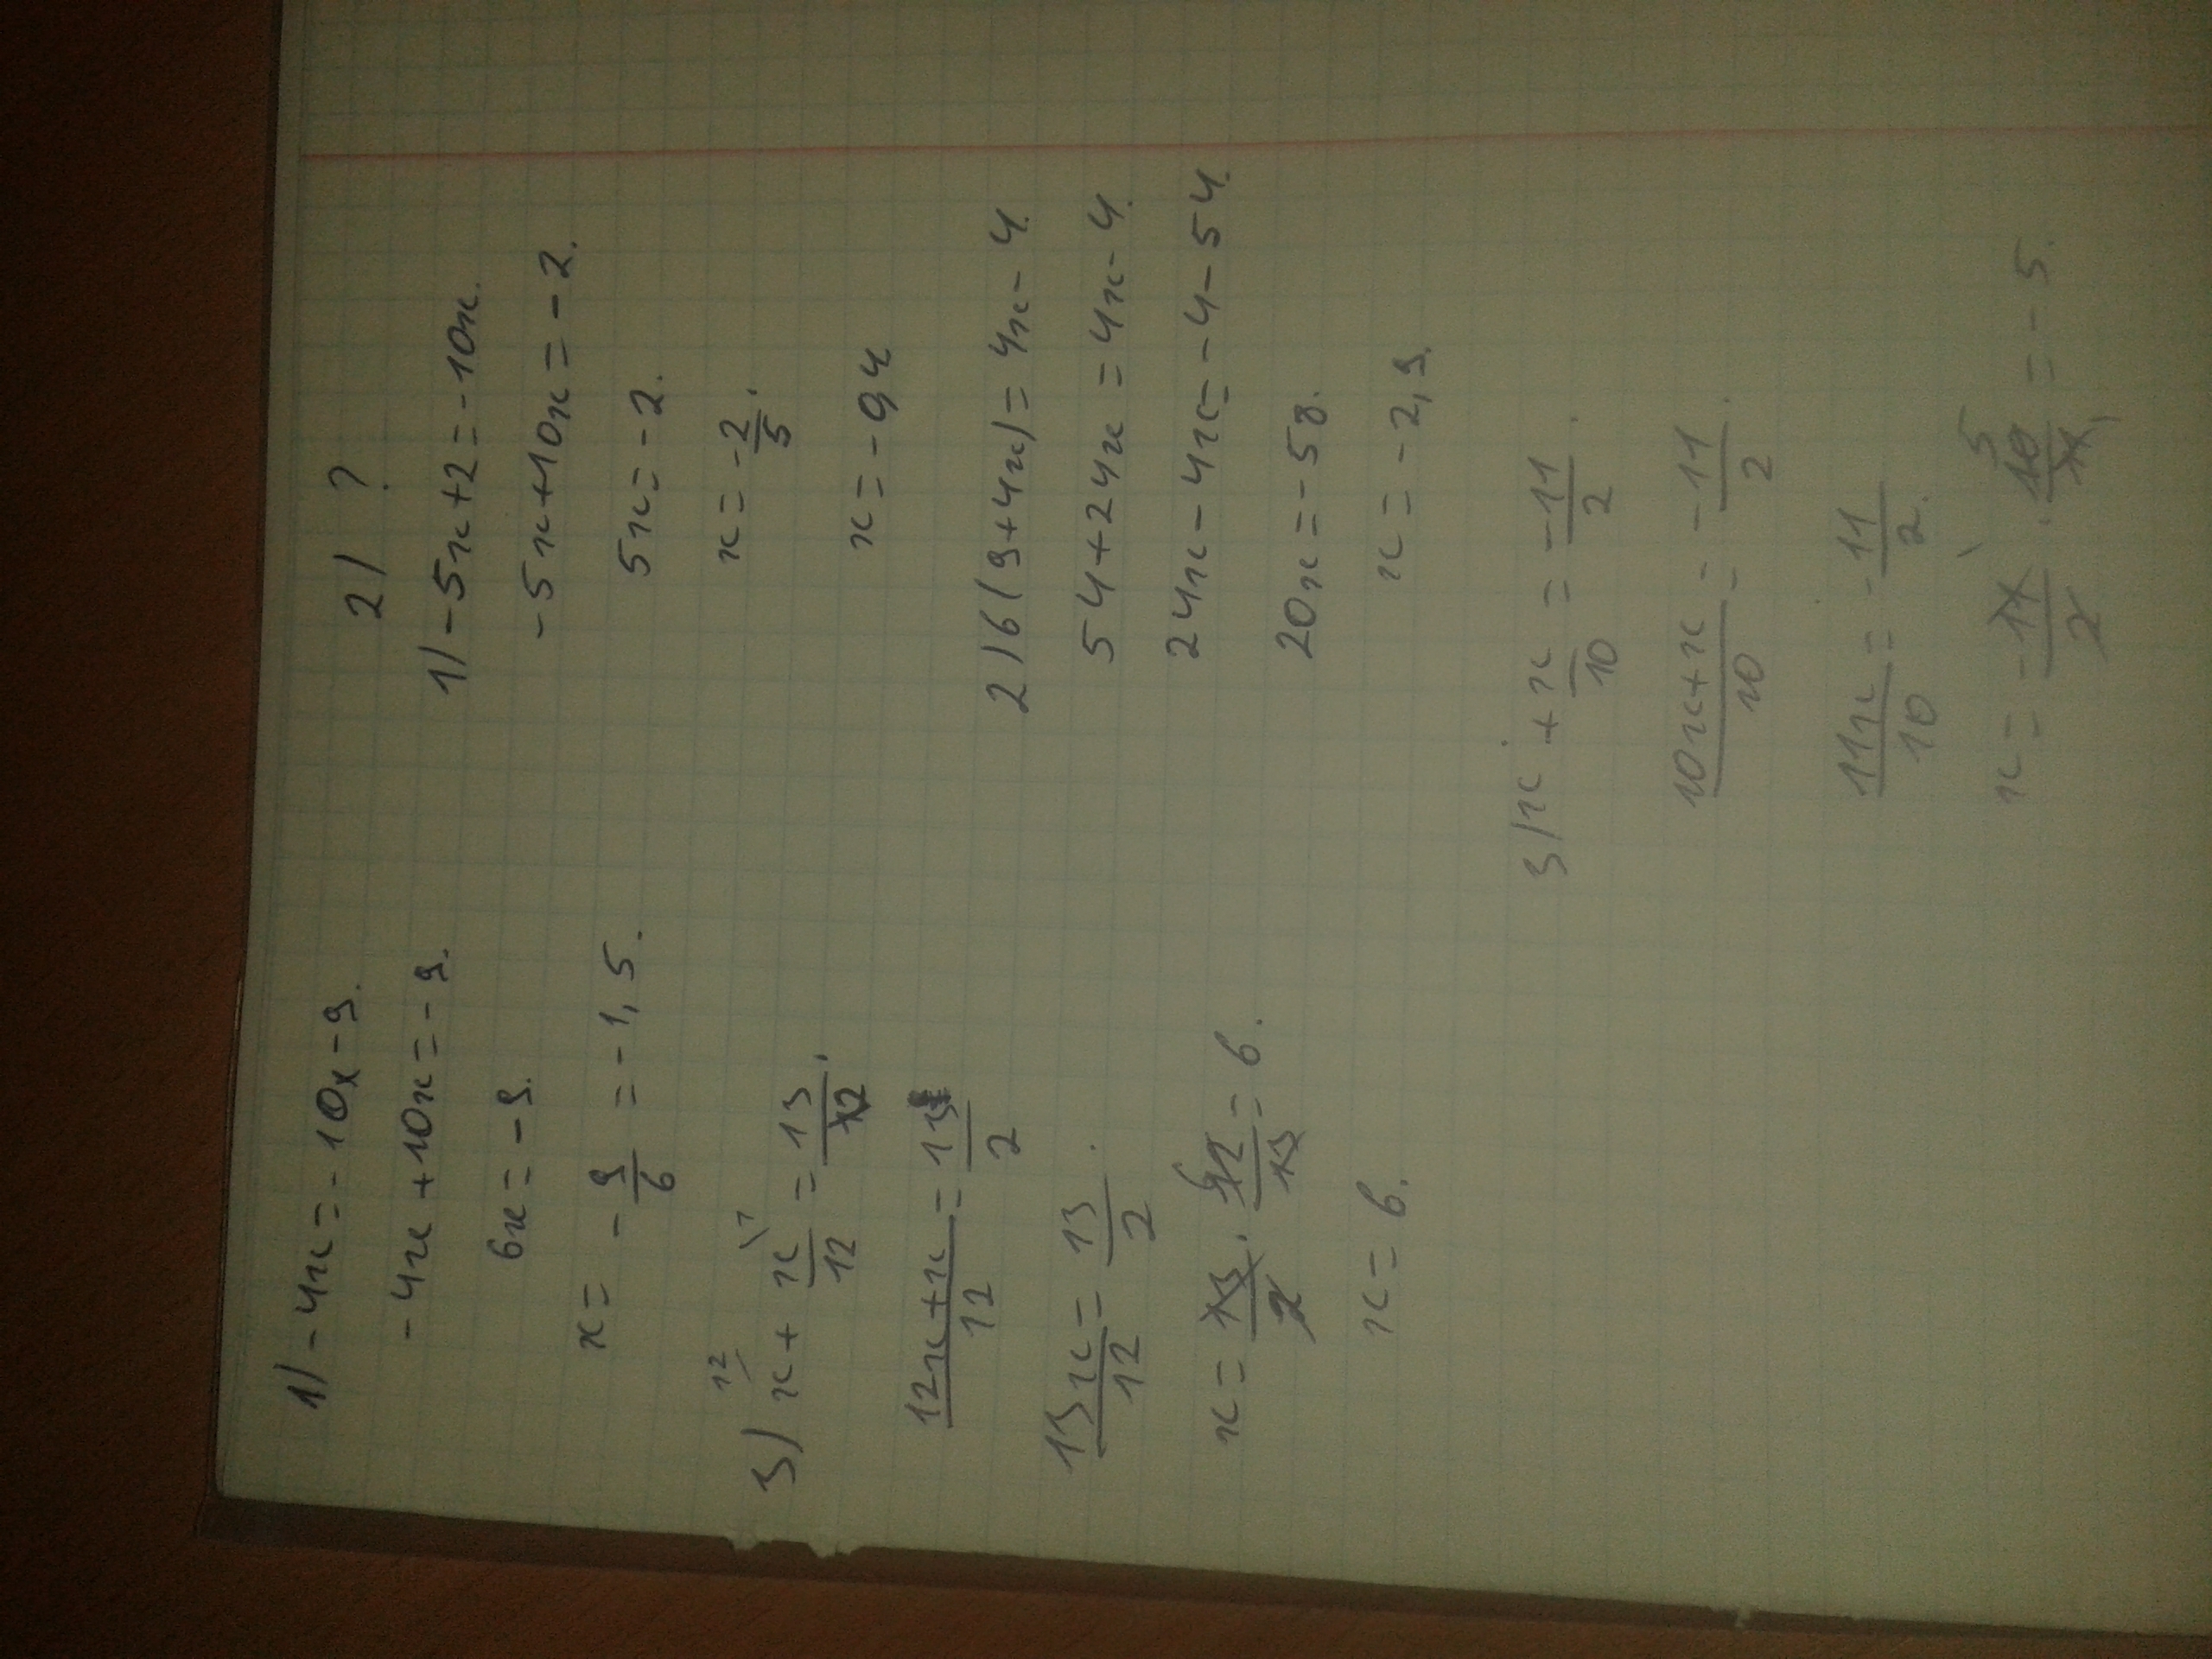 1) -4x = -10x - 9.
-4x + 10x = -9.
6x = -9.
x = -9/6 = -1,5.
3) x + x/12 = 13/2.
(12x + x)/12 = 13/2
13x/12 = 13/2.
x = 13/2 · 12/13 = 6.
x = 6.
2) ?
1) -5x + 2 = -10x.
-5x + 10x = -2.
5x = -2.
x = -2/5.
x = -0,4
2) 6(9 + 4x) = 4x - 4.
54 + 24x = 4x - 4.
24x - 4x = -4 - 54.
20x = -58.
x = -2,9.
3) x + x/10 = -11/2.
(10x + x)/10 = -11/2.
11x/10 = -11/2.
x = -11/2 · 10/11 = -5.